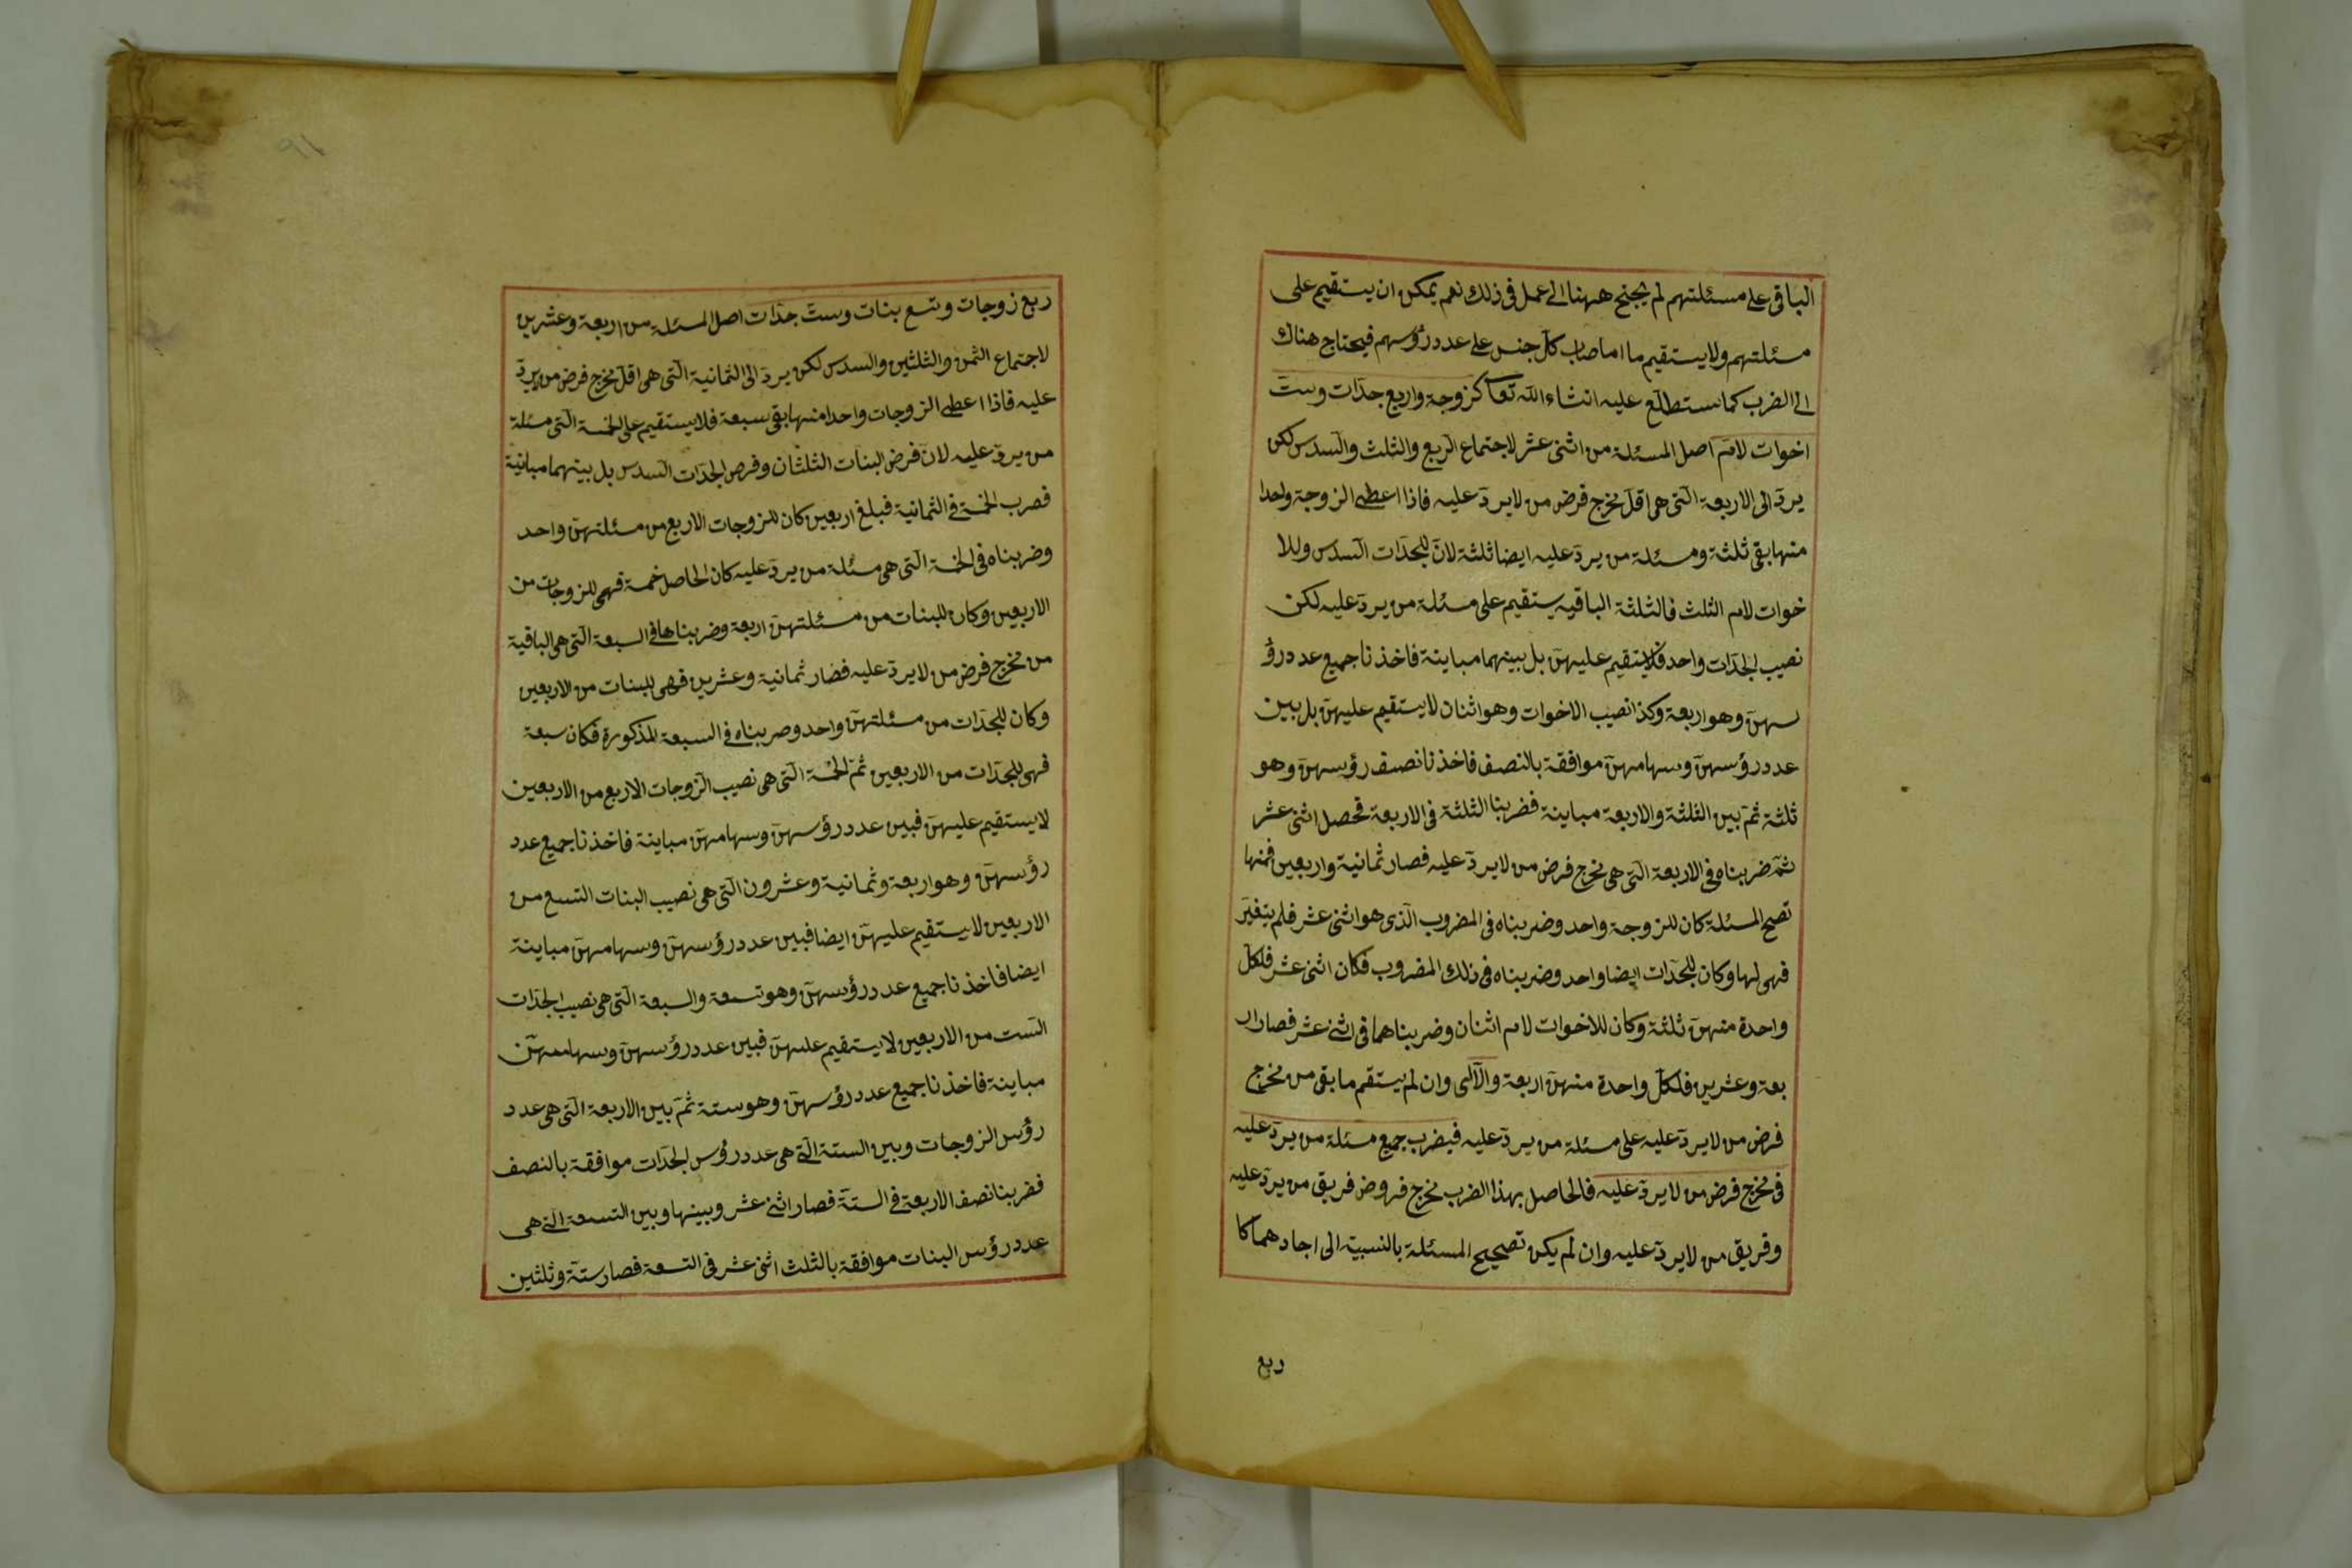 الباقى على مسئلتهم لم يحتج ههنا الى عمل فى ذلك نعم يمكن ان يستقيم على
مسئلتهم ولا يستقيم ما اصاب كل جنس على عدد رؤسهم فيحتاج هناك
الى الضرب كما ستطلع عليه انشاء الله تعا كزوجة واربع جدّات وستّ
اخوات لامّ اصل المسئلة من اثنى عشر لاجتماع الربع والثلث والسدس لكن
يردّ الى الاربعة الّتى هى اقلّ مخرج فرض من لا يردّ عليه فاذا اعطى الزوجة واحدا
منها بقى ثلثة ومسئلة من يردّ عليه ايضا ثلثة لانّ للجدّات السدس وللا
خوات لام الثلث فالثلثة الباقيه يستقيم على مسئلة من يردّ عليه لكن
نصيب الجدّات واحد فلا يستقيم عليهنّ بل بينهما مباينة فاخذنا جميع عدد رؤ
سهنّ وهو اربعة وكذا نصيب الاخوات وهو اثنان لا يستقيم عليهنّ بل بين
عدد رؤسهنّ وسهامهنّ موافقة بالنصف فاخذنا نصف رؤسهنّ وهو
ثلثة ثمّ بين الثلثة والاربعة مباينة فضربنا الثلثة فى الاربعة فحصل اثنى عشر
ثمّ ضربناه فى الاربعة الّتى هى مخرج فرض من لا يردّ عليه فصار ثمانية واربعين فمنها
تصح المسئلة كان للزوجة واحد وضربناه فى المضروب الّذى هو اثنى عشر فلم يتغيّر
فهى لها وكان للجدّات ايضا واحد وضربناه فى ذلك المضروب فكان اثنى عشر فلكلّ
واحدة منهنّ ثلثة وكان للاخوات لام اثنان وضربناهما فى اثنى عشر فصار ار
بعة وعشرين فلكلّ واحدة منهنّ اربعة والّا اى وان لم يستقم ما بقى من مخرج
فرض من لا يردّ عليه على مسئلة من يردّ عليه فيضرب جميع مسئلة من يردّ عليه
فى مخرج فرض من لا يردّ عليه فالحاصل بهذا الضرب مخرج فروض فريق من يردّ عليه
وفريق من لا يردّ عليه وان لم يكن تصحيح المسئلة بالنسبة الى احادهما كا
ربع
ربع زوجات وتسع بنات وستّ جدّات اصل المسئلة من اربعة وعشرين
لاجتماع الثمن والثلثين والسدس لكن يردّ الى الثمانية الّتى هى اقلّ مخرج فرض من يردّ
عليه فاذا اعطى الزوجات واحدا منها بقى سبعة فلا يستقيم على الخمسة الّتى مسئلة
من يردّ عليه لانّ فرض البنات الثلثان وفرض الجدّات السدس بل بينهما مباينة
فضرب الخمسة فى الثمانية فبلغ اربعين كان للزوجات الاربع من مسئلتهنّ واحد
وضربناه فى الخمسة الّتى هى مسئلة من يردّ عليه كان الحاصل خمسة فهى للزوجات من
الاربعين وكان للبنات من مسئلتهنّ اربعة وضربناها فى السبعة الّتى هى الباقية
من مخرج فرض من لا يردّ عليه فصار ثمانية وعشرين فهى للبنات من الاربعين
وكان للجدّات من مسئلتهنّ واحد وضربناه فى السبعة المذكورة فكان سبعة
فهى للجدّات من الاربعين ثمّ الخمسة الّتى هى نصيب الزوجات الاربع من الاربعين
لا يستقيم عليهنّ فبين عدد رؤسهنّ وسهامهنّ مباينة فاخذنا جميع عدد
رؤسهنّ وهو اربعة وثمانية وعشرون الّتى هى نصيب البنات التسع من
الاربعين لا يستقيم عليهنّ ايضا فبين عدد رؤسهنّ وسهامهنّ مباينة
ايضا فاخذنا جميع عدد رؤسهنّ وهو تسعة والسبعة الّتى هى نصيب الجدّات
الستّ من الاربعين لا يستقيم عليهنّ فبين عدد رؤسهنّ وسهامهنّ
مباينة فاخذنا جميع عدد رؤسهنّ وهو ستة ثمّ بين الاربعة الّتى هى عدد
رؤس الزوجات وبين الستة الّتى هى عدد رؤس الجدّات موافقة بالنصف
فضربنا نصف الاربعة فى الستّة فصار اثنى عشر وبينها وبين التسعة الّتى هى
عدد رؤس البنات موافقة بالثلث اثنى عشر فى التسعة فصار ستّة وثلثين